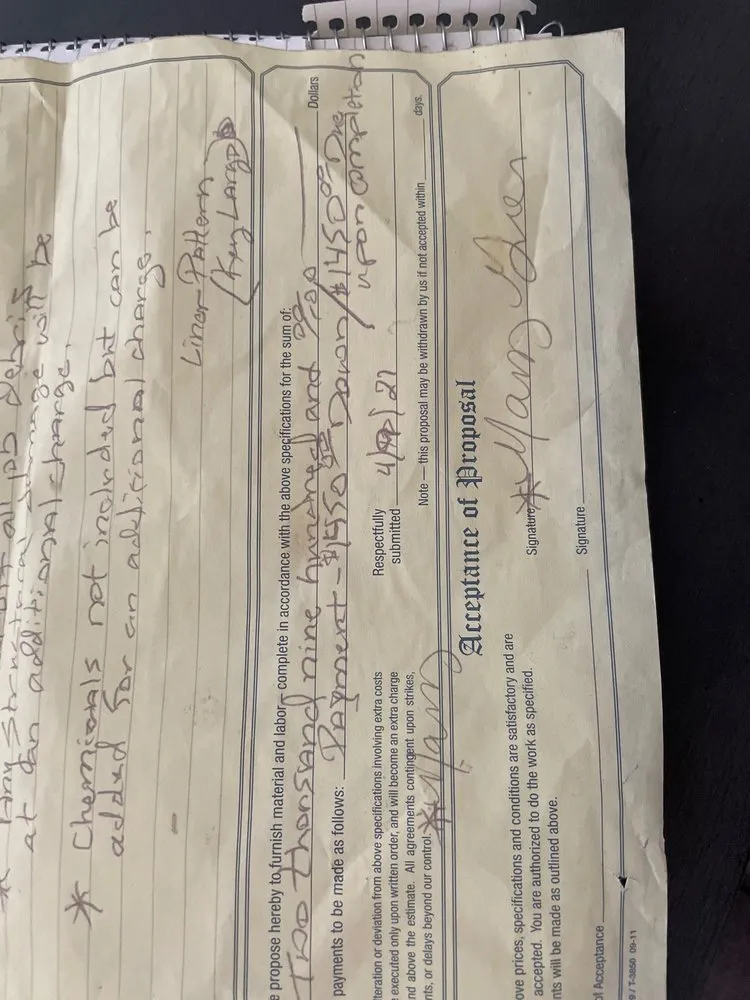 all job debris
* Any structural damage will be
at an additional charge.
* Chemicals not included but can be
added for an additional charge.
Liner Pattern -
(Key Largo)
e propose hereby to furnish material and labor - complete in accordance with the above specifications for the sum of:
Two thousand nine hundred and
Dollars
payments to be made as follows: Payment - $1450.00 Down / $1450.00 Due
upon completion
lteration or deviation from above specifications involving extra costs
executed only upon written order, and will become an extra charge
nd above the estimate. All agreements contingent upon strikes,
nts, or delays beyond our control.
Respectfully
submitted
Note — this proposal may be withdrawn by us if not accepted within days.
Acceptance of Proposal
ove prices, specifications and conditions are satisfactory and are
accepted. You are authorized to do the work as specified.
nts will be made as outlined above.
Signature
Signature
of Acceptance
9 / T-3850 09-11